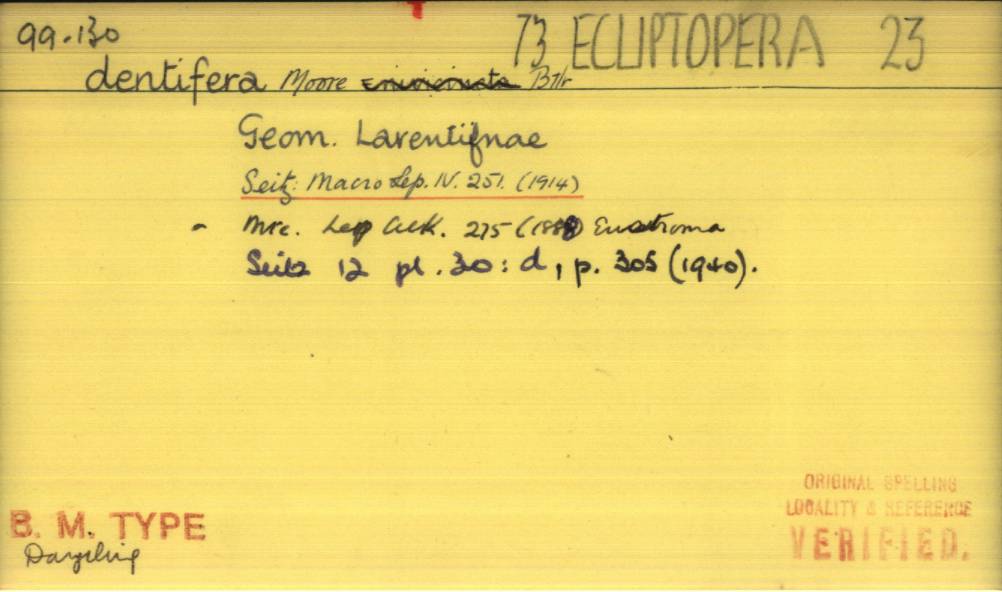 99.130
73 ECLIPTOPERA 23
dentifera Moore Btlr
Geom. Larentiinae
Seitz: Macro Lep. IV. 251. (1914)
- Mre. Lep Atk. 275 (1888) Eustroma
Seitz 12 pl. 30: d, p. 305 (1940).
ORIGINAL SPELLING
LOCALITY & REFERENCE
VERIFIED.
B. M. TYPE
Darjeeling